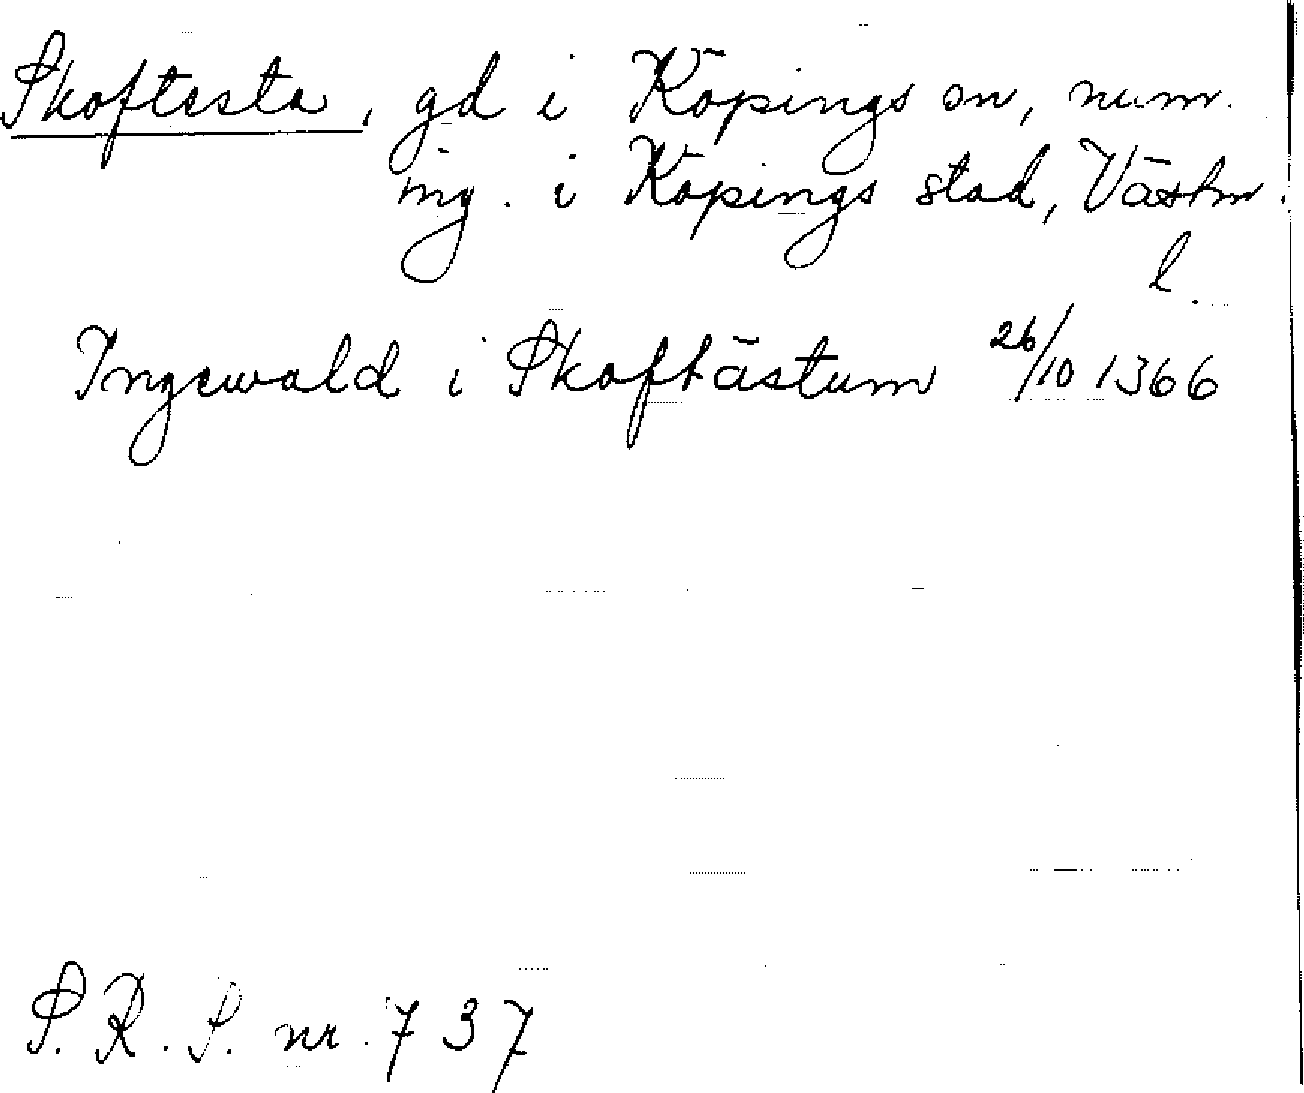 Skoftesta, gd i Köpings sn, num.
ing. i Köpings stad, Västm.
l.
Ingewald i Skoftästum 26/10 1366
S.R.S. nr. 737